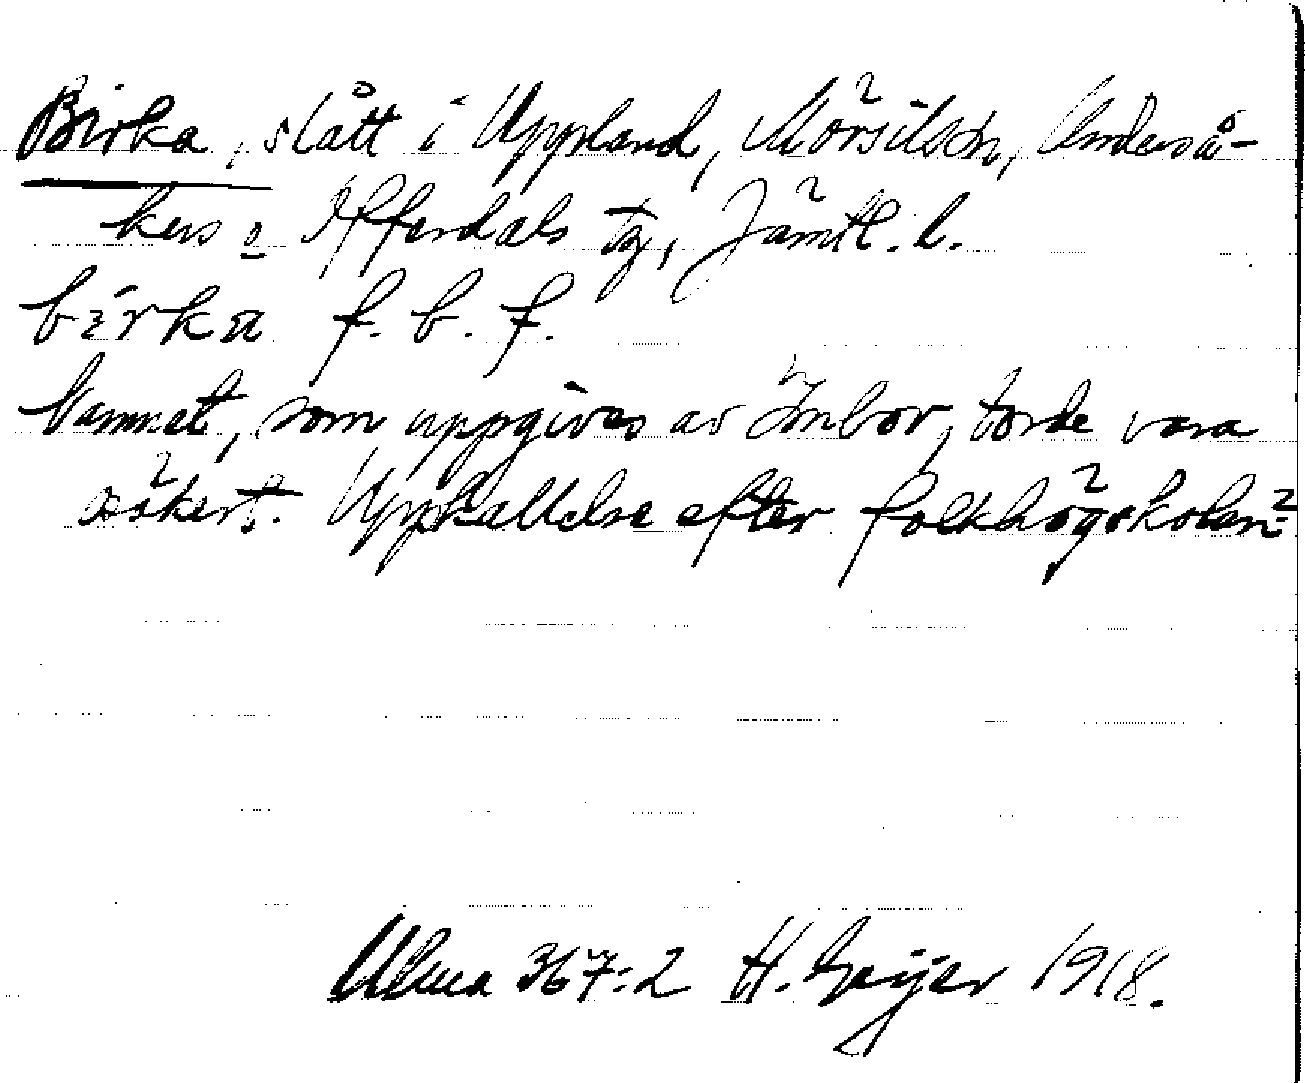 Birka, slått i Uppland, Mörsils sn, Underså-
kers o Offerdals tg, Jämtl. l.
birka f. b. f.
Namnet, som uppgives av Inbor, torde vara
säkert. Uppkallelse efter folkhögskolan?
Ulma 367:2 H. Geijer 1918.